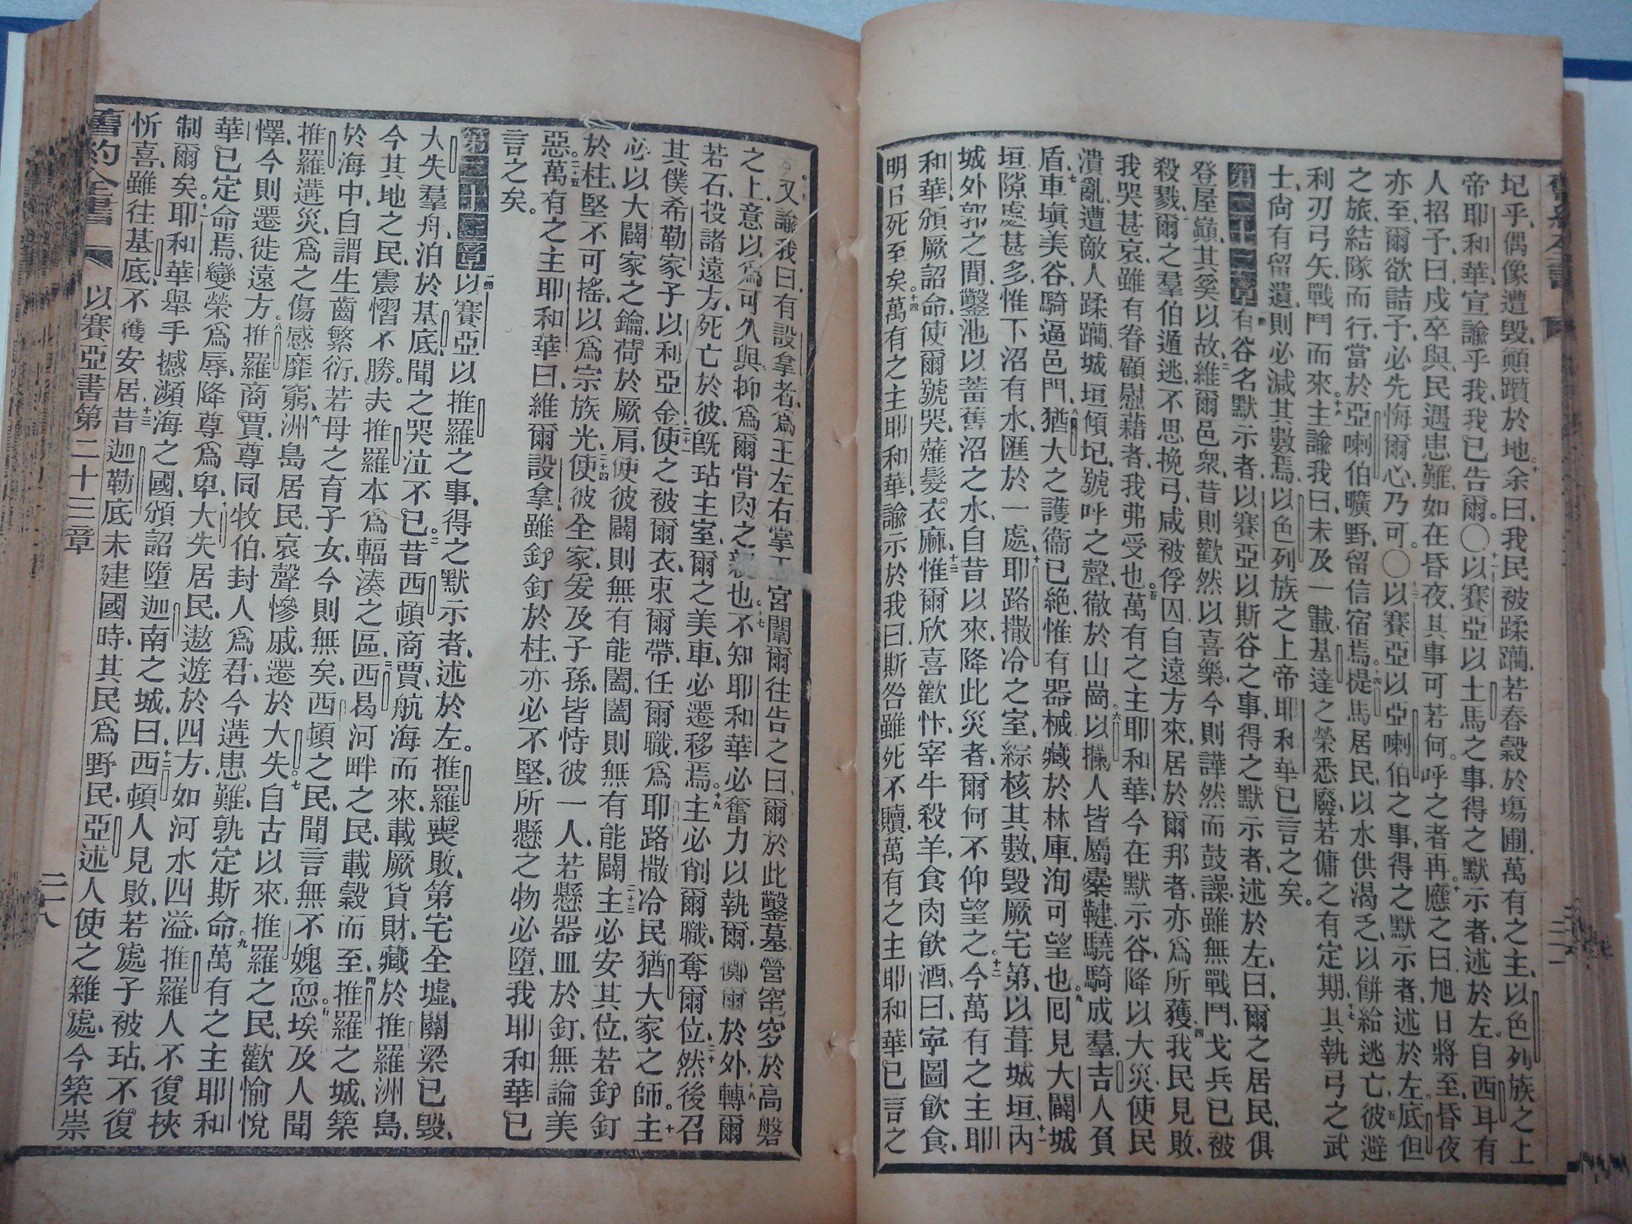 圮乎、偶像遭毀、顚躓於地、余曰、我民被蹂躪、若春穀於塲圃、萬有之主、以色列族之上
帝耶和華宣諭乎我、我已告爾。〇以賽亞以土馬之事、得之默示者、述於左、自西耳有
人招予曰、戍卒與民遇患難、如在昏夜、其事可若何。呼之者再、應之曰、旭日將至、昏夜
亦至、爾欲詰予、必先悔爾心乃可。〇以賽亞以亞喇伯之事、得之默示者、述於左。底但
之旅、結隊而行、當於亞喇伯曠野、留信宿焉。提馬居民、以水供渴乏、以餅給逃亡、彼避
利刃弓矢、戰鬥而來。主諭我曰、未及一載、基達之榮悉廢、若傭之有定期、其執弓之武
士、尙有留遺、則必減其數焉、以色列族之上帝耶和華已言之矣。
第二十二章 有谷名默示者、以賽亞以斯谷之事、得之默示者、述於左、曰、爾之居民、俱
登屋巓、其奚以故、維爾邑衆、昔則歡然以喜樂、今則譁然而鼓譟、雖無戰鬥、戈兵已被
殺戮、爾之羣伯遁逃、不思挽弓、咸被俘囚、自遠方來居於爾邦者、亦爲所獲、我民見敗、
我哭甚哀、雖有眷顧慰藉者、我弗受也。萬有之主耶和華、今在默示谷、降以大災、使民
潰亂、遭敵人蹂躪、城垣傾圮、號呼之聲、徹於山崗。以攔人皆屬櫜鞬、驍騎成羣、吉人負
盾、車塡美谷、騎逼邑門、猶大之護衞已絕、惟有器械、藏於林庫、洵可望也。囘見大闢城
垣、隙處甚多、惟下沼有水匯於一處、耶路撒冷之室、綜核其數、毀厥宅第、以葺城垣、內
城外郭之間、鑿池以蓄舊沼之水、自昔以來、降此災者、爾何不仰望之。今萬有之主耶
和華、頒厥詔命、使爾號哭、薙髮衣麻、惟爾欣喜歡忭、宰牛殺羊、食肉飲酒、曰、寧圖飲食、
明日死至矣。萬有之主耶和華、諭示於我、曰、斯咎雖死不贖、萬有之主耶和華已言之
又諭我曰、有設拿者、爲王左右、掌 宮闈、爾往告之曰、爾於此鑿墓、營窀穸於高磐
之上、意以爲可久與、抑爲爾骨肉之親也。不知耶和華必奮力以執爾、擲爾於外、轉爾
若石、投諸遠方、死亡於彼、旣玷主室、爾之美車、必遷移焉。主必削爾職、奪爾位、然後召
其僕希勒家子以利亞金、使之被爾衣、束爾帶、任爾職、爲耶路撒冷民猶大家之師。主
必以大闢家之鑰、荷於厥肩、使彼闢則無有能闔、闔則無有能闢、主必安其位、若釫釘
於柱、堅不可搖、以爲宗族光、使彼全家、爰及子孫、皆恃彼一人、若懸器皿於釘、無論美
惡。萬有之主耶和華曰、維爾設拿、雖釫釘於柱、亦必不堅、所懸之物必墮、我耶和華已
言之矣。
第二十三章 以賽亞以推羅之事、得之默示者、述於左。推羅喪敗、第宅全墟、關梁已毀、
大失羣舟、泊於基底、聞之哭泣不已。昔西頓商賈、航海而來、載厥貨財、藏於推羅洲島、
今其地之民、震慴不勝。夫推羅本爲輻湊之區、西曷河畔之民、載穀而至、推羅之城、築
於海中、自謂生齒繁衍、若母之育子女、今則無矣、西頓之民、聞言無不媿恧、埃及人聞
推羅遘災、爲之傷感靡窮、洲島居民、哀聲慘戚、遷於大失。自古以來、推羅之民、歡愉悅
懌、今則遷徙遠方、推羅商賈、尊同牧伯、封人爲君、今遘患難、孰定斯命、萬有之主耶和
華、已定命焉、變榮爲辱、降尊爲卑、大失居民、遨遊於四方、如河水四溢、推羅人不復挾
制爾矣。耶和華舉手撼瀕海之國、頒詔墮迦南之城、曰、西頓人見敗、若處子被玷、不復
忻喜、雖往基底、不獲安居。昔迦勒底未建國時、其民爲野民、亞述人使之雜處、今築崇
舊約全書 以賽亞書第二十三章 二十八